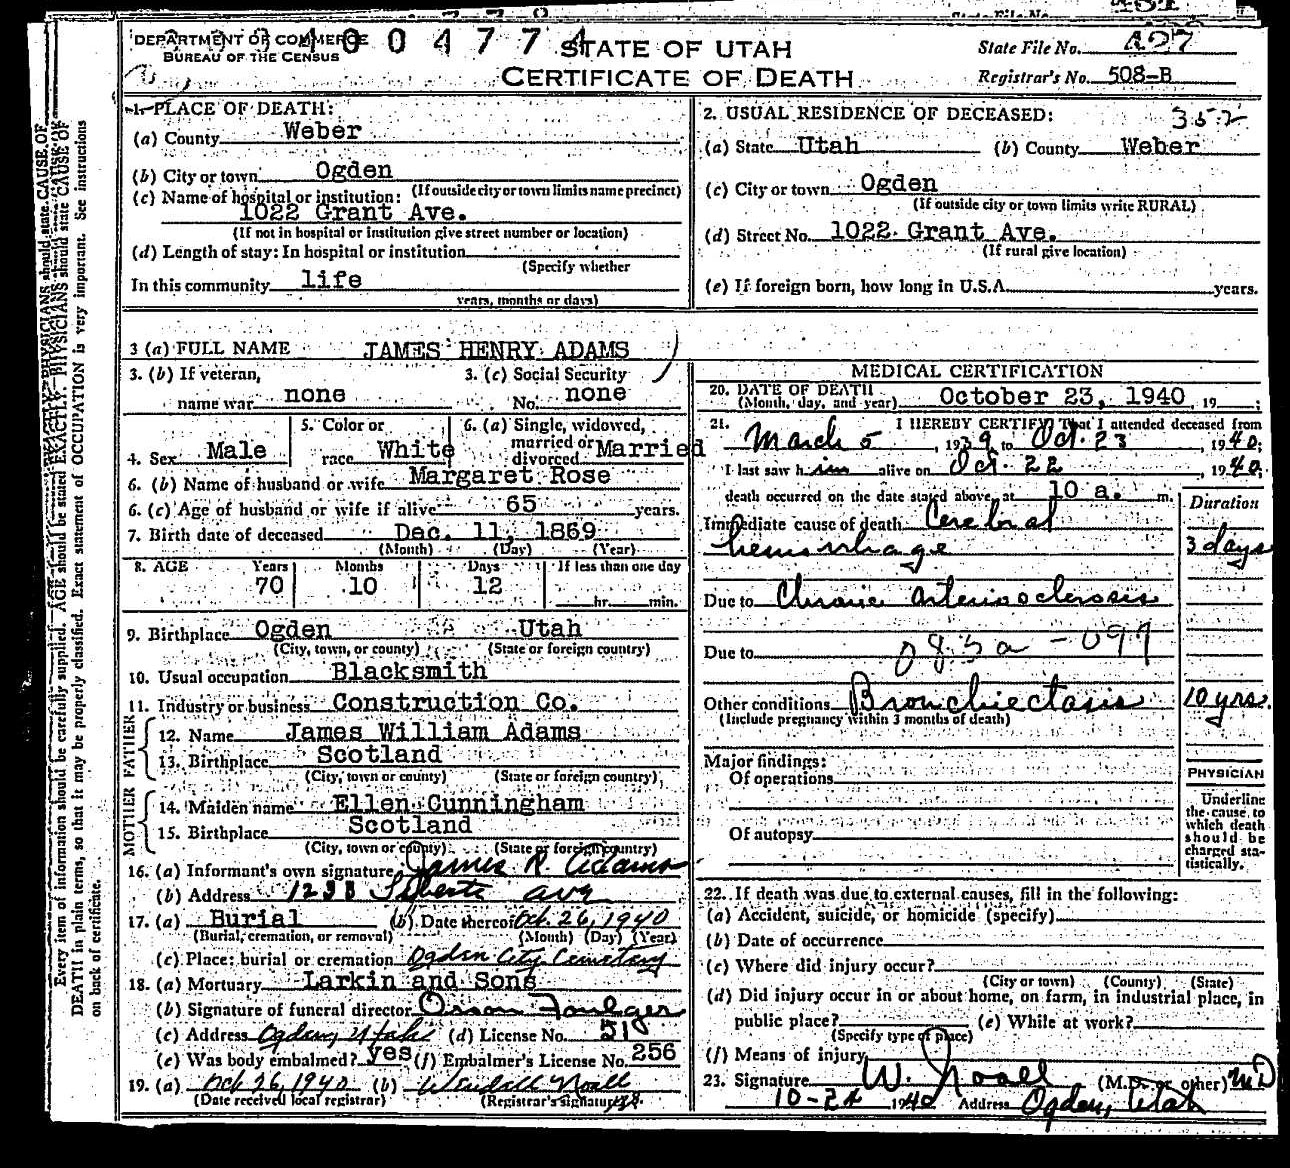 DEPARTMENT OF COMMERCE
BUREAU OF THE CENSUS
1004774
STATE OF UTAH
CERTIFICATE OF DEATH
State File No. 427
Registrar's No. 508-B
1. PLACE OF DEATH:
(a) County Weber
(b) City or town Ogden
(If outside city or town limits name precinct)
(c) Name of hospital or institution:
1022 Grant Ave.
(If not in hospital or institution give street number or location)
(d) Length of stay: In hospital or institution
(Specify whether
In this community life
years, months or days)
2. USUAL RESIDENCE OF DECEASED: 352
(a) State Utah (b) County Weber
(c) City or town Ogden
(If outside city or town limits write RURAL)
(d) Street No. 1022 Grant Ave.
(If rural give location)
(e) If foreign born, how long in U.S.A. years.
3 (a) FULL NAME JAMES HENRY ADAMS
3. (b) If veteran, name war none
3. (c) Social Security No. none
4. Sex Male
5. Color or race White
6. (a) Single, widowed, married or divorced Married
6. (b) Name of husband or wife Margaret Rose
6. (c) Age of husband or wife if alive 65 years.
7. Birth date of deceased Dec. 11, 1869
(Month) (Day) (Year)
8. AGE Years Months Days If less than one day
70 10 12 hr. min.
9. Birthplace Ogden Utah
(City, town, or county) (State or foreign country)
10. Usual occupation Blacksmith
11. Industry or business Construction Co.
FATHER
12. Name James William Adams
13. Birthplace Scotland
(City, town or county) (State or foreign country)
MOTHER
14. Maiden name Ellen Cunningham
15. Birthplace Scotland
(City, town or county) (State or foreign country)
16. (a) Informant's own signature James R. Adams
(b) Address 1233 Liberty ave
17. (a) Burial (b) Date thereof Oct. 26, 1940
(Burial, cremation, or removal) (Month) (Day) (Year)
(c) Place: burial or cremation Ogden City Cemetery
18. (a) Mortuary Larkin and Sons
(b) Signature of funeral director Orson Foulger
(c) Address Ogden, Utah (d) License No. 51
(e) Was body embalmed? yes (f) Embalmer's License No. 256
19. (a) Oct 26, 1940 (b) Wendell Noall
(Date received local registrar) (Registrar's signature)
MEDICAL CERTIFICATION
20. DATE OF DEATH
(Month, day, and year) October 23, 1940, 19 ;
21. I HEREBY CERTIFY That I attended deceased from
March 5, 1939 to Oct. 23, 1940;
I last saw him alive on Oct. 22 1940,
death occurred on the date stated above, at 10 a. m.
Duration
Immediate cause of death Cerebral
hemorrhage 3 days
Due to Chronic arteriosclerosis
Due to 083a-097
Other conditions Bronchiectasis 10 yrs.
(Include pregnancy within 3 months of death)
Major findings:
Of operations
Of autopsy
PHYSICIAN
Underline
the cause to
which death
should be
charged sta-
tistically.
22. If death was due to external causes, fill in the following:
(a) Accident, suicide, or homicide (specify)
(b) Date of occurrence
(c) Where did injury occur?
(City or town) (County) (State)
(d) Did injury occur in or about home, on farm, in industrial place, in
public place? (e) While at work?
(Specify type of place)
(f) Means of injury
23. Signature W. Noall (M.D. or other) MD
10-24 1940 Address Ogden, Utah
Every item of information should be carefully supplied. AGE should be stated EXACTLY. PHYSICIANS should state CAUSE OF
DEATH in plain terms, so that it may be properly classified. Exact statement of OCCUPATION is very important. See instructions
on back of certificate.